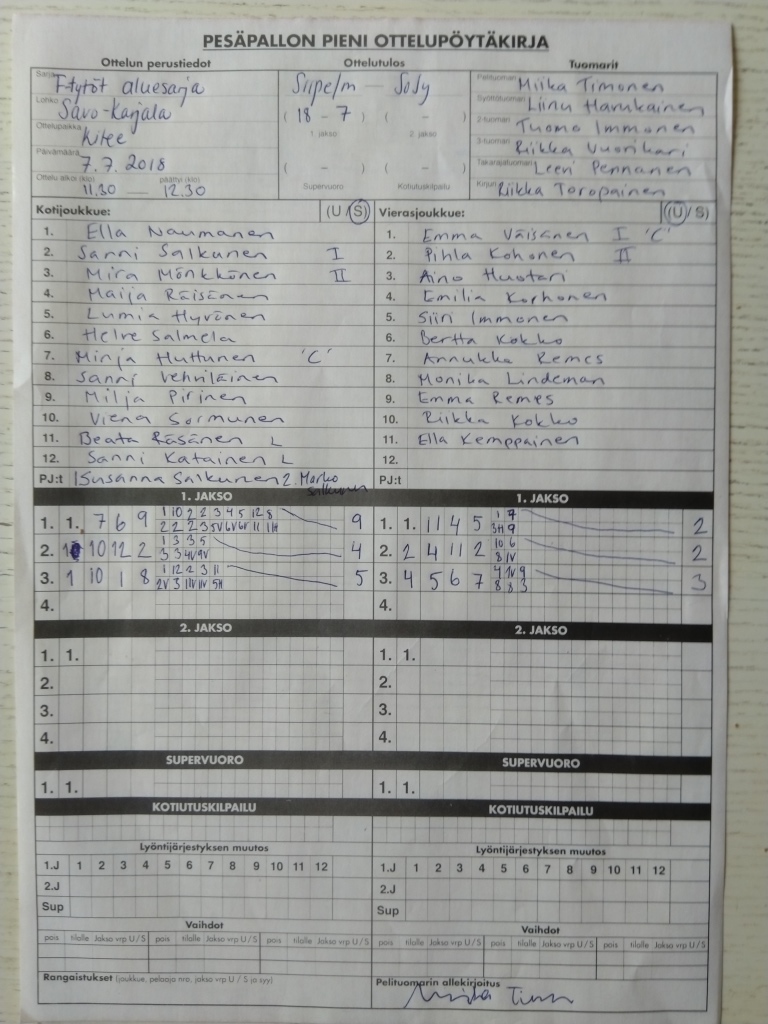 PESÄPALLON PIENI OTTELUPÖYTÄKIRJA
Ottelun perustiedot Ottelutulos Tuomarit
Sarja F-tytöt aluesarja
Lohko Savo-Karjala
Ottelupaikka Kitee
Päivämäärä 7.7.2018
Ottelu alkoi (klo) päättyi (klo)
11.30 — 12.30
Siipe/m — SoJy
( 18 - 7 ) ( - )
1. jakso 2. jakso
( - ) ( - )
Supervuoro Kotiutuskilpailu
Pelituomari Miika Timonen
Syöttötuomari Liinu Harukainen
2-tuomari Tuomo Immonen
3-tuomari Riikka Vuorikari
Takarajatuomari Leevi Pennanen
Kirjuri Riikka Toropainen
Kotijoukkue: (U / S)
1. Ella Naumanen
2. Sanni Salkunen I
3. Mira Mönkkönen II
4. Maija Räisänen
5. Lumia Hyvönen
6. Helve Salmela
7. Minja Huttunen 'C'
8. Sanni Vehviläinen
9. Milja Pirinen
10. Viena Sormunen
11. Beata Räsänen L
12. Sanni Katainen L
PJ:t 1 Susanna Salkunen 2. Marko Salkunen
Vierasjoukkue: (U / S)
1. Emma Väisänen I 'C'
2. Pihla Kohonen II
3. Aino Huotari
4. Emilia Korhonen
5. Siiri Immonen
6. Bertta Kokko
7. Annukka Remes
8. Monika Lindeman
9. Emma Remes
10. Riikka Kokko
11. Ella Kemppainen
12.
PJ:t
1. JAKSO
1. 1. 7 6 9 1 10 2 2 3 4 5 12 8 9
2 2 2 3 5V 6V 6V 11 11H
2. 10 12 2 1 3 3 5 4
3 3 4V 9V
3. 1 10 1 8 1 12 2 3 11 5
2V 3 11V 11V 5H
4.
1. JAKSO
1. 1. 11 4 5 1 7 2
3H 9
2. 2 4 11 2 10 6 2
8 1V
3. 4 5 6 7 4 1V 9 3
8 8 3
4.
2. JAKSO 2. JAKSO
1. 1. 1. 1.
2. 2.
3. 3.
4. 4.
SUPERVUORO SUPERVUORO
1. 1. 1. 1.
KOTIUTUSKILPAILU KOTIUTUSKILPAILU
Lyöntijärjestyksen muutos Lyöntijärjestyksen muutos
1.J 1 2 3 4 5 6 7 8 9 10 11 12 1.J 1 2 3 4 5 6 7 8 9 10 11 12
2.J 2.J
Sup Sup
Vaihdot Vaihdot
pois tilalle Jakso vrp U / S pois tilalle Jakso vrp U / S pois tilalle Jakso vrp U / S pois tilalle Jakso vrp U / S pois tilalle Jakso vrp U / S pois tilalle Jakso vrp U / S
Rangaistukset (joukkue, pelaaja nro, jakso vrp U / S ja syy) Pelituomarin allekirjoitus